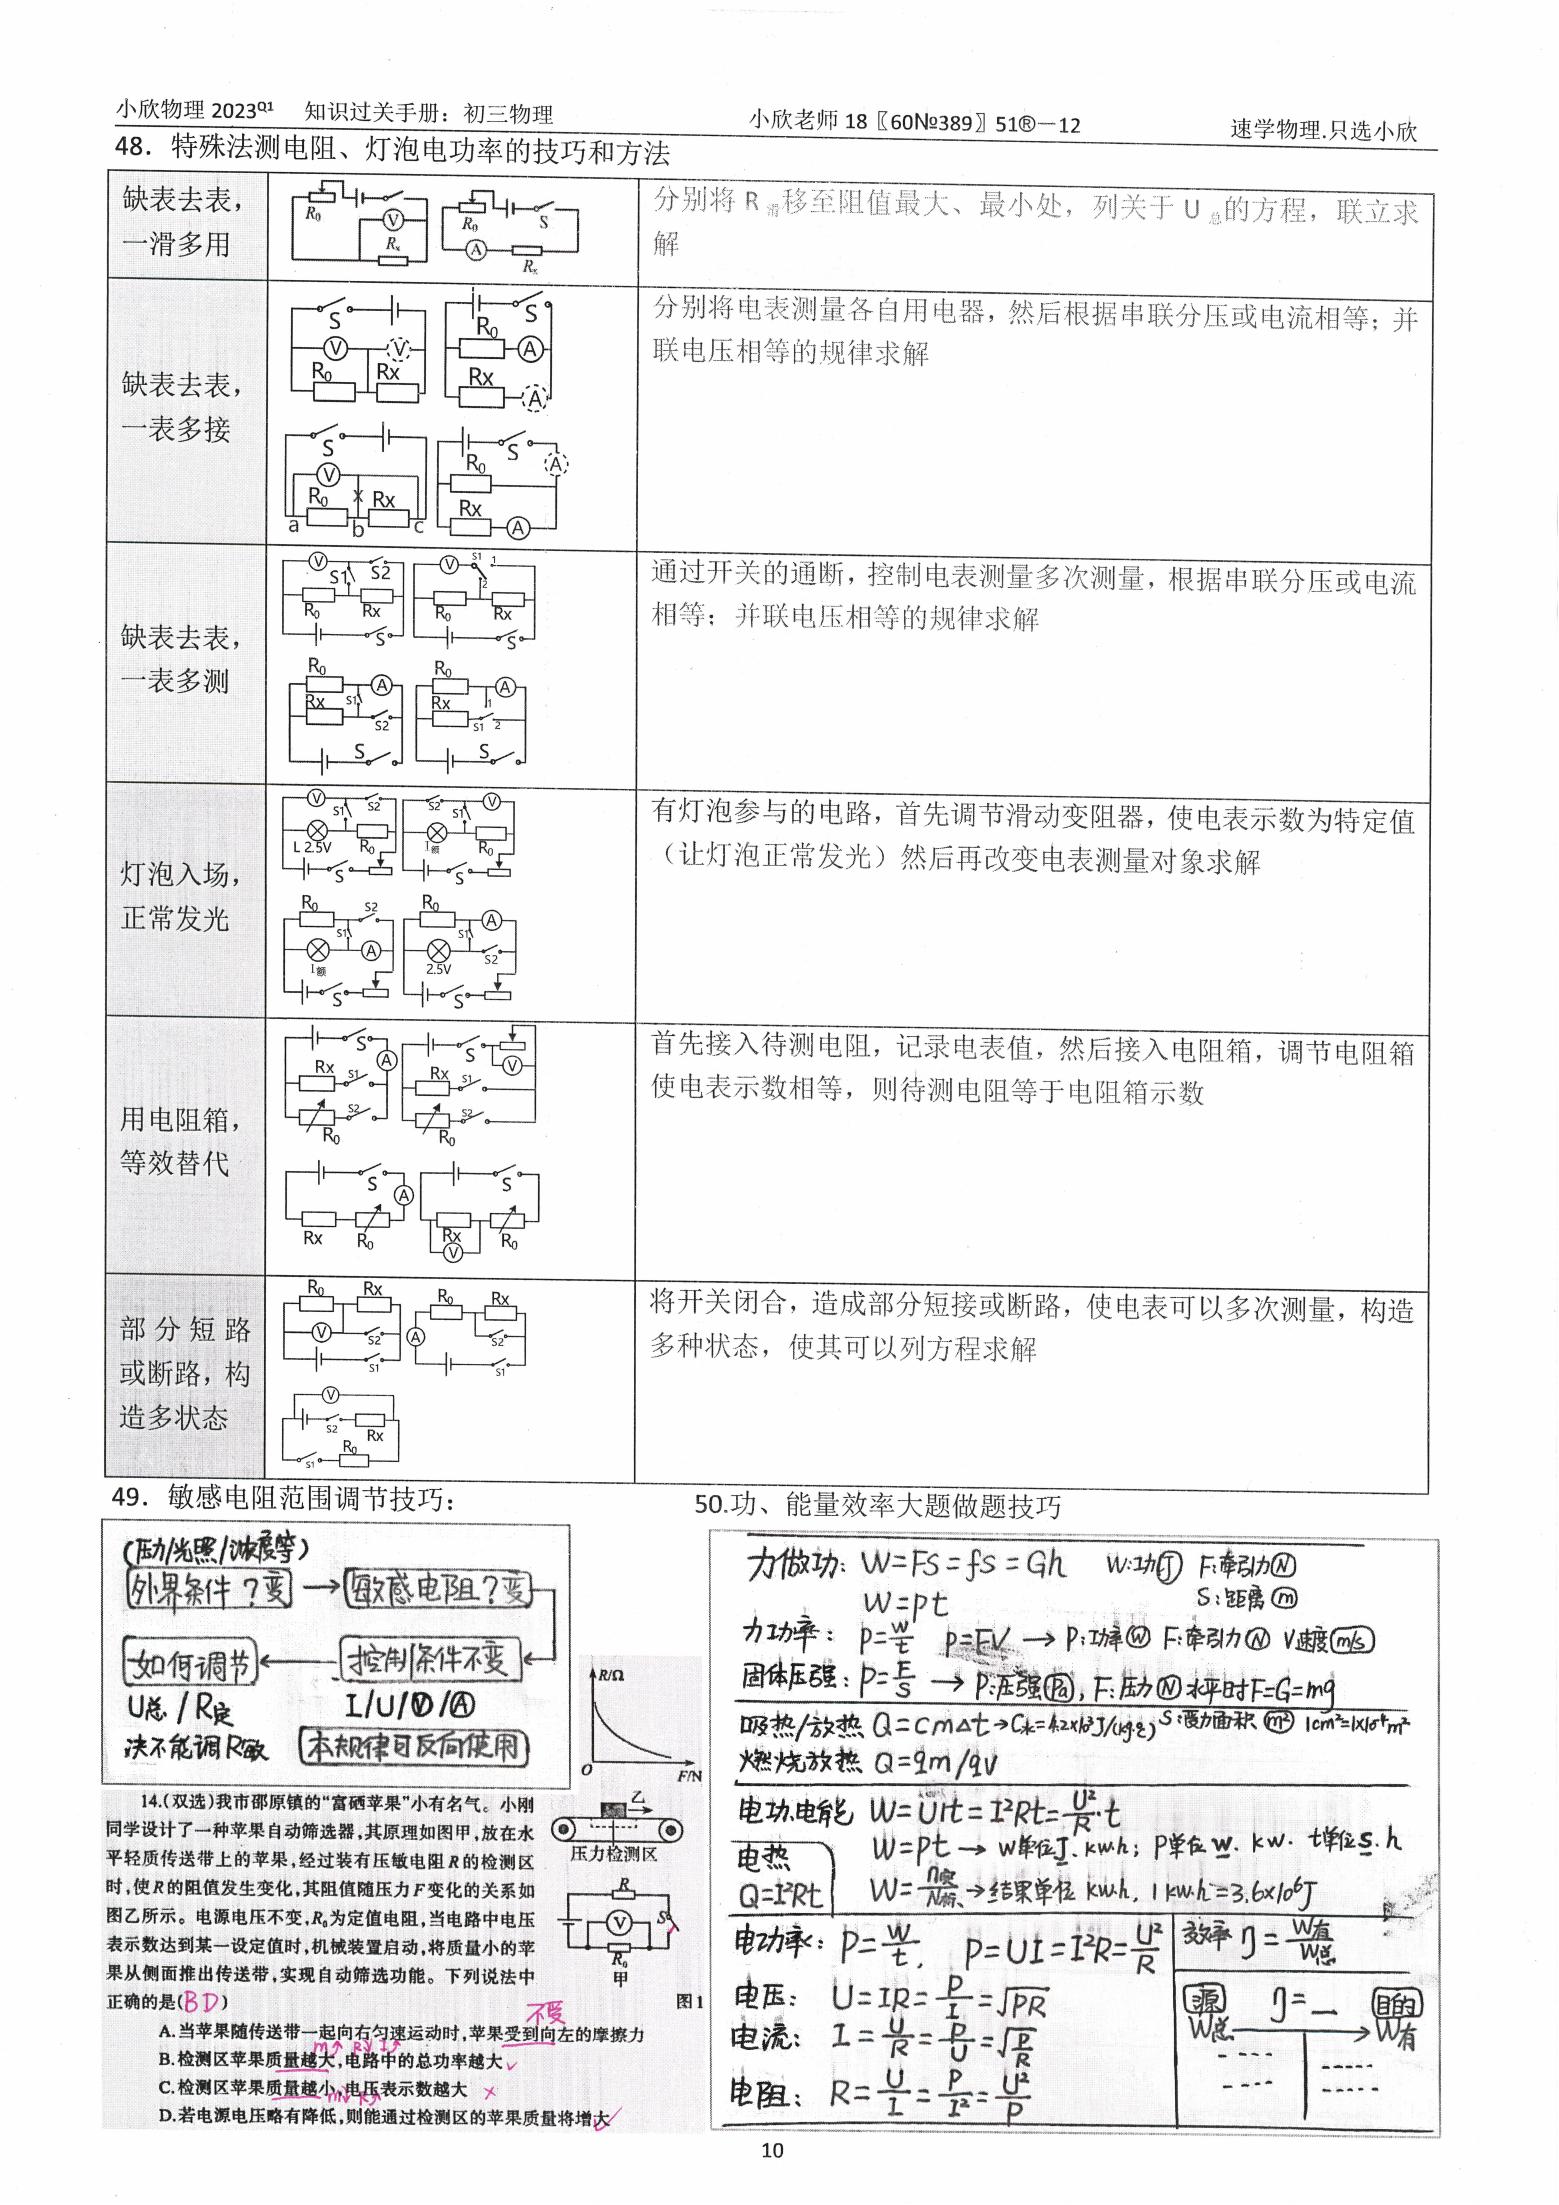 小欣物理 2023Q1 知识过关手册：初三物理 小欣老师 18〖60№389〗51®－12 速学物理.只选小欣
48．特殊法测电阻、灯泡电功率的技巧和方法
缺表去表，
一滑多用
R₀ V Rx
R₀ S A Rx
分别将 R滑移至阻值最大、最小处，列关于 U总的方程，联立求
解
缺表去表，
一表多接
S V V R₀ Rx
S R₀ A Rx A
S V R₀ Rx a b c
S R₀ A Rx A
分别将电表测量各自用电器，然后根据串联分压或电流相等；并
联电压相等的规律求解
缺表去表，
一表多测
V S1 S2 R₀ Rx S
V S1 1 2 R₀ Rx S
R₀ A Rx S1 S2 S
R₀ A Rx 1 S1 2 S
通过开关的通断，控制电表测量多次测量，根据串联分压或电流
相等；并联电压相等的规律求解
灯泡入场，
正常发光
V S1 S2 L 2.5V R₀ S
S2 S1 V I额 R₀ S
R₀ S2 S1 A I额 S
R₀ A S1 S2 2.5V S
有灯泡参与的电路，首先调节滑动变阻器，使电表示数为特定值
（让灯泡正常发光）然后再改变电表测量对象求解
用电阻箱，
等效替代
S A Rx S1 S2 R₀
S V Rx S1 S2 R₀
S A Rx R₀
S Rx V R₀
首先接入待测电阻，记录电表值，然后接入电阻箱，调节电阻箱
使电表示数相等，则待测电阻等于电阻箱示数
部分短路
或断路，构
造多状态
R₀ Rx V S2 S1
R₀ Rx A S2 S1
V S2 Rx R₀ S1
将开关闭合，造成部分短接或断路，使电表可以多次测量，构造
多种状态，使其可以列方程求解
49．敏感电阻范围调节技巧：
(压力/光照/浓度等)
外界条件？变 → 敏感电阻？变
如何调节 ← 控制条件不变
U总 / R定 I/U/Ⓥ/Ⓐ
决不能调R敏 本规律可反向使用
R/Ω
O F/N
14.(双选)我市邵原镇的“富硒苹果”小有名气。小刚
同学设计了一种苹果自动筛选器,其原理如图甲,放在水
平轻质传送带上的苹果,经过装有压敏电阻R的检测区
时,使R的阻值发生变化,其阻值随压力F变化的关系如
图乙所示。电源电压不变,R₀为定值电阻,当电路中电压
表示数达到某一设定值时,机械装置启动,将质量小的苹
果从侧面推出传送带,实现自动筛选功能。下列说法中
正确的是(BD)
乙
压力检测区
R
V S
R₀
甲
图1
不受
A.当苹果随传送带一起向右匀速运动时,苹果受到向左的摩擦力
m↑ R↓ I↑
B.检测区苹果质量越大,电路中的总功率越大✓
C.检测区苹果质量越小,电压表示数越大 ×
m↓ R↑
D.若电源电压略有降低,则能通过检测区的苹果质量将增大✓
50.功、能量效率大题做题技巧
力做功: W=FS=fS=Gh W:功Ⓙ F:牵引力Ⓝ
W=pt S:距离ⓜ
力功率: P=W/t P=FV → P:功率Ⓦ F:牵引力Ⓝ V速度(m/s)
固体压强: P=F/S → P:压强(Pa), F:压力Ⓝ水平时F=G=mg
吸热/放热 Q=cm△t→C水=4.2×10³J/(kg·℃) S:受力面积(m²) 1cm²=1×10⁻⁴m²
燃烧放热 Q=qm/qV
电功.电能 W=UIt=I²Rt=U²/R·t
W=Pt → W单位J.kw·h; P单位w.kw. t单位s.h
电热
Q=I²Rt
W=n实/N额→结果单位 kw·h, 1kw·h=3.6×10⁶J
电功率: P=W/t, P=UI=I²R=U²/R
效率 η=W有/W总
电压: U=IR=P/I=√PR
电流: I=U/R=P/U=√P/R
电阻: R=U/I=P/I²=U²/P
源 η=＿ 目的
W总 → W有
10